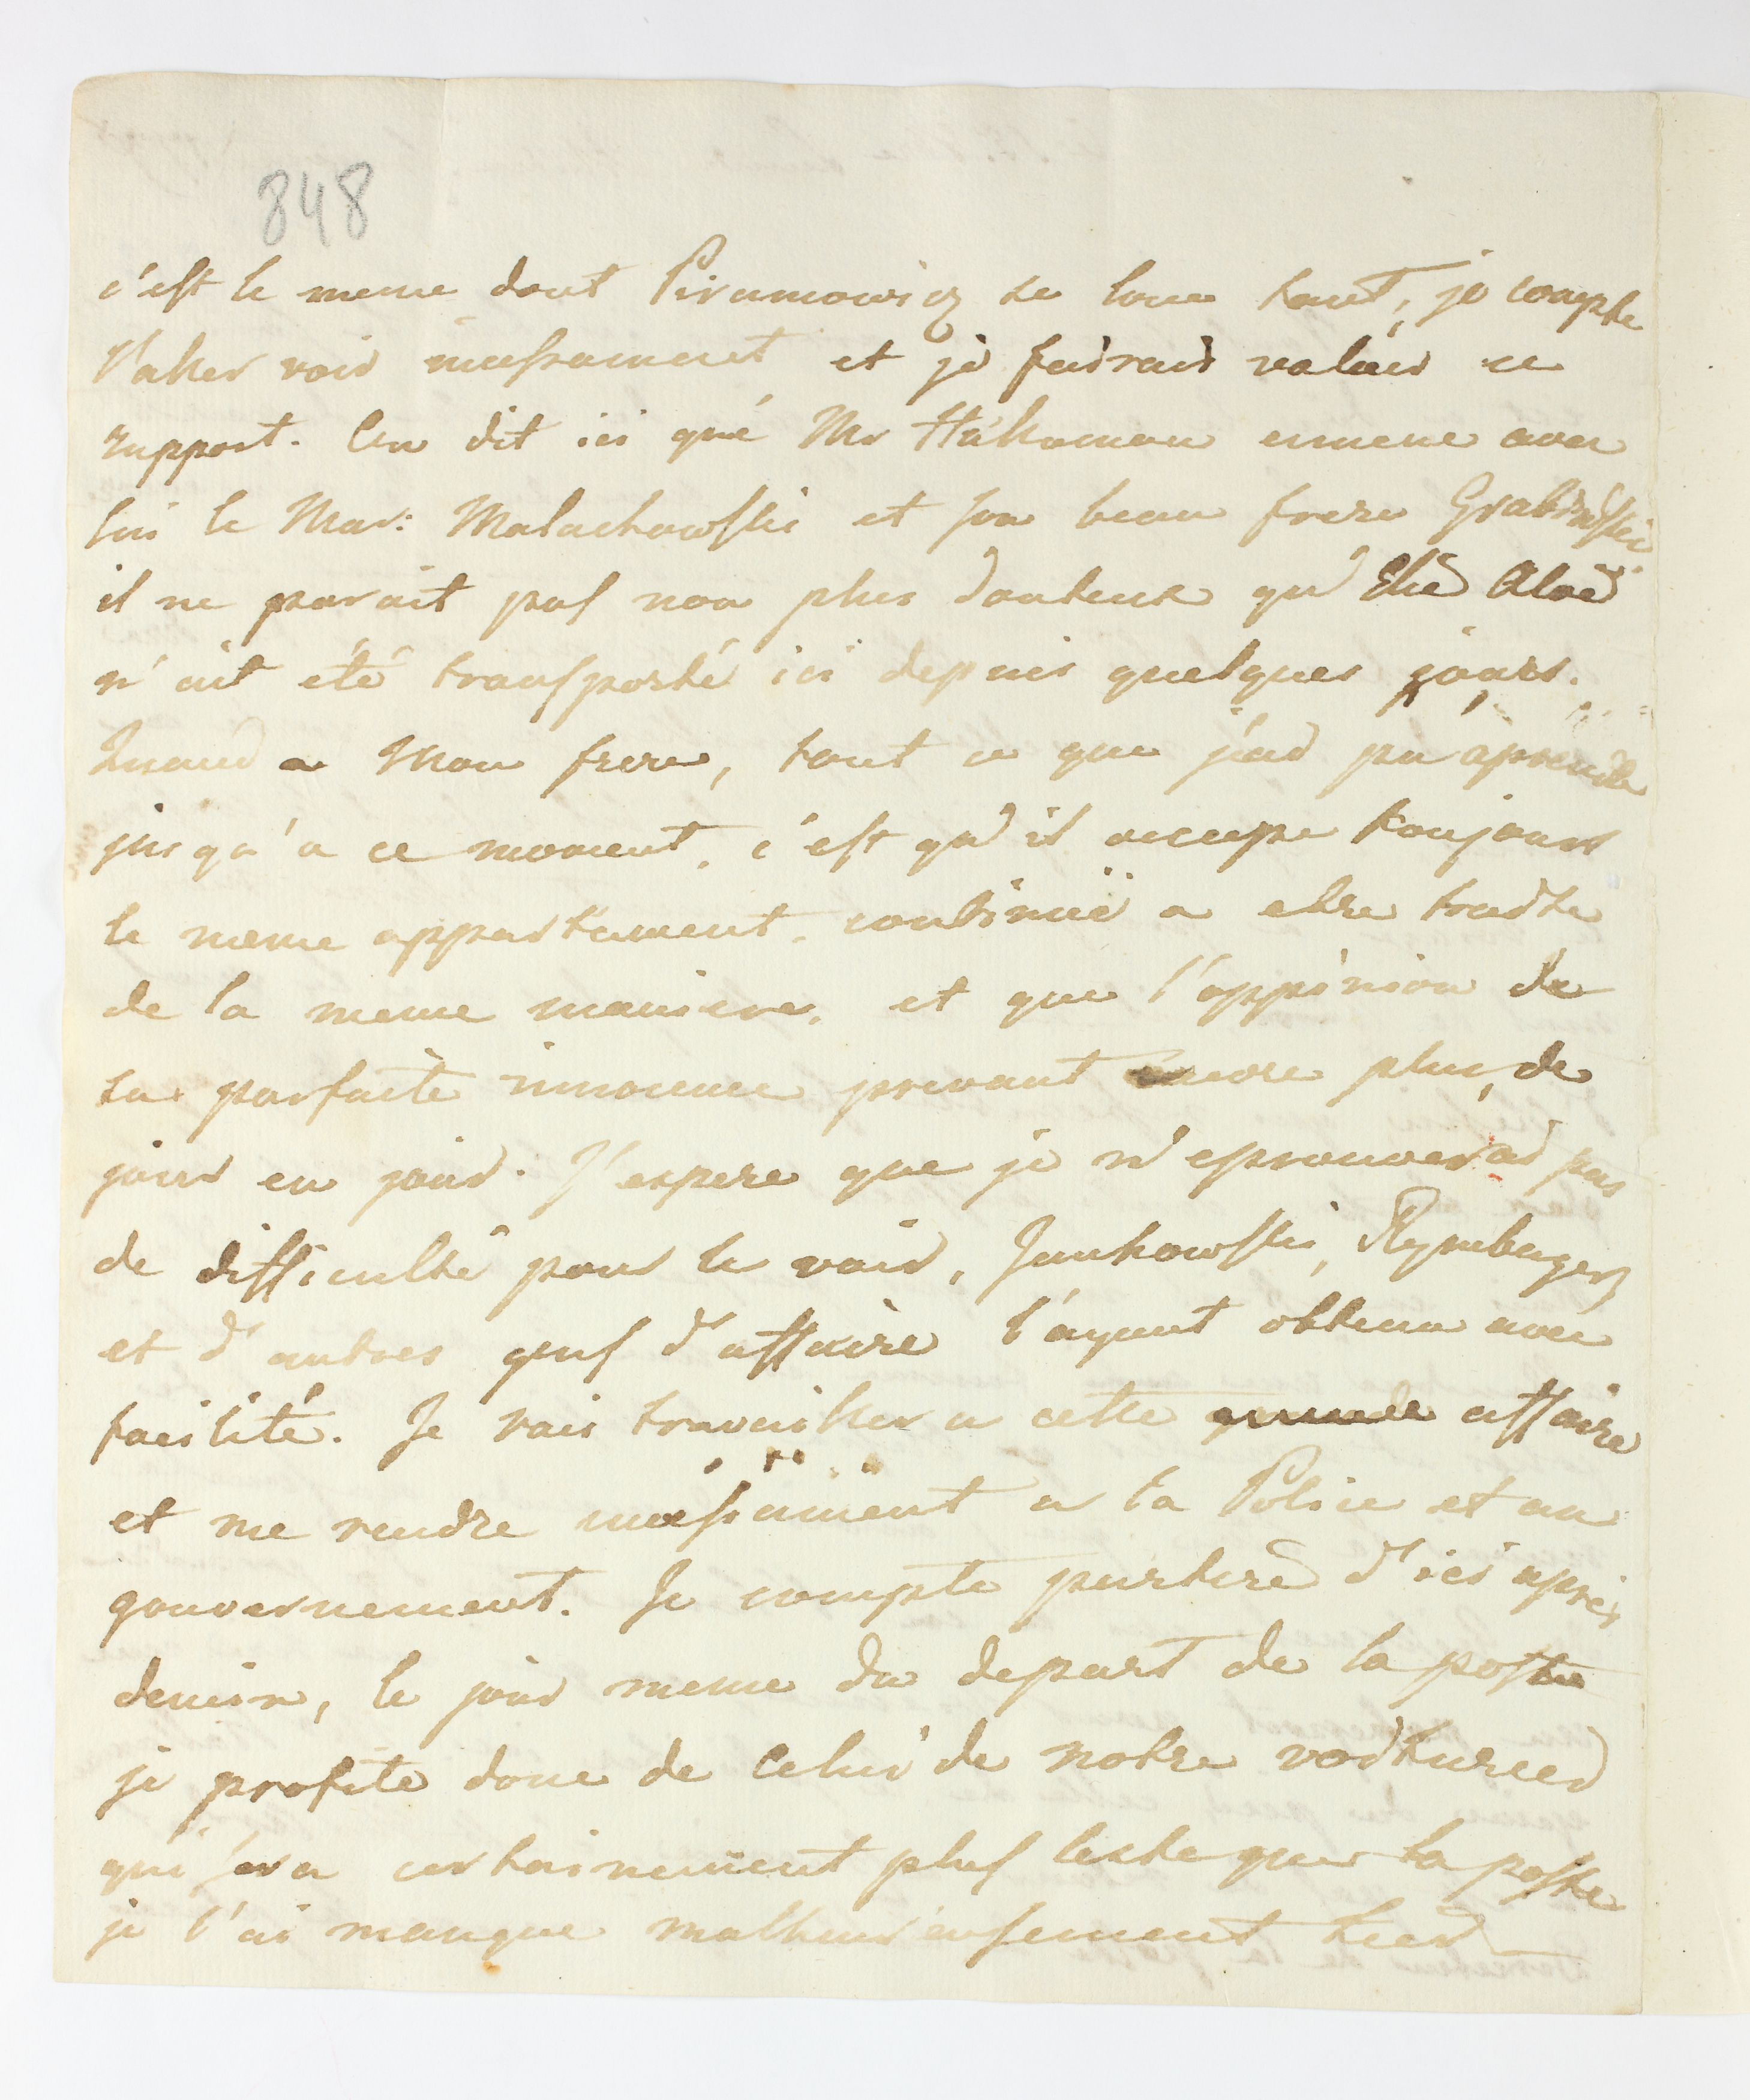 848
c'est le meme dont Piramowicz se loue tant, je compte
l'aller voir incessament et je fairais valoir ce
rapport. On dit ici que Mr Hakoman emmene avec
lui le Mar: Malachowski et son beau frere Grabinski
il ne parait pas non plus douteux qu'Elie Aloe
n'ait été transporté ici depuis quelques jours.
Quand a Mon frere, tout ce que j'ai pu aprendre
jusqu'a ce moment, c'est qu'il occupe toujours
le meme appartement, continuë a etre traite
de la meme maniere, et que l'oppinion de
sa parfaite innocence prevaut encore plus, de
jour en jour. J'espere que je n'eprouverai pas
de difficulté pour le voir, Junkowski,
et d'autres gens d'affaire l'ayant obtenu avec
facilité. Je vais travailler a cette grande affaire
et me rendre incessament a la Police et au
gouvernement. Je compte partire d'ici après
demin, le jour meme du depart de la poste
je profite donc de celui de notre voitureer
qui ira certainement plus leste que la poste
je l'ai manque malheureusement hier